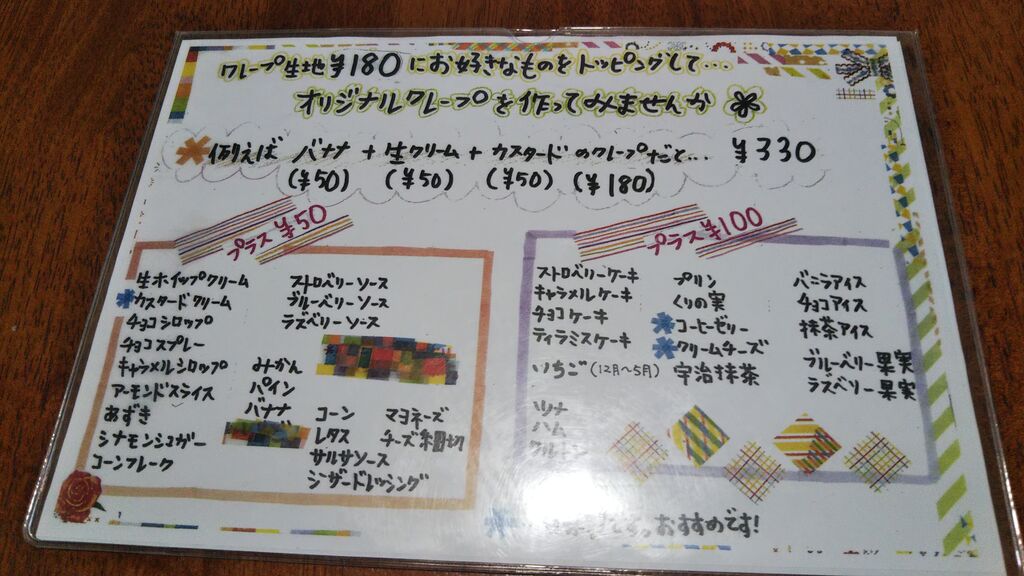 クレープ生地¥180にお好きなものをトッピングして...
オリジナルクレープを作ってみませんか
例えば バナナ+生クリーム+カスタードのクレープだと... ¥330
(¥50) (¥50) (¥50) (¥180)
プラス¥50
生ホイップクリーム
カスタードクリーム
チョコシロップ
チョコスプレー
キャラメルシロップ
アーモンドスライス
あずき
シナモンシュガー
コーンフレーク
ストロベリーソース
ブルーベリーソース
ラズベリーソース
みかん
パイン
バナナ
コーン
レタス
サルサソース
シーザードレッシング
マヨネーズ
チーズ細切
プラス¥100
ストロベリーケーキ
キャラメルケーキ
チョコケーキ
ティラミスケーキ
いちご(12月～5月)
ツナ
ハム
クルトン
プリン
くりの実
コーヒーゼリー
クリームチーズ
宇治抹茶
バニラアイス
チョコアイス
抹茶アイス
ブルーベリー果実
ラズベリー果実
おすすめです!